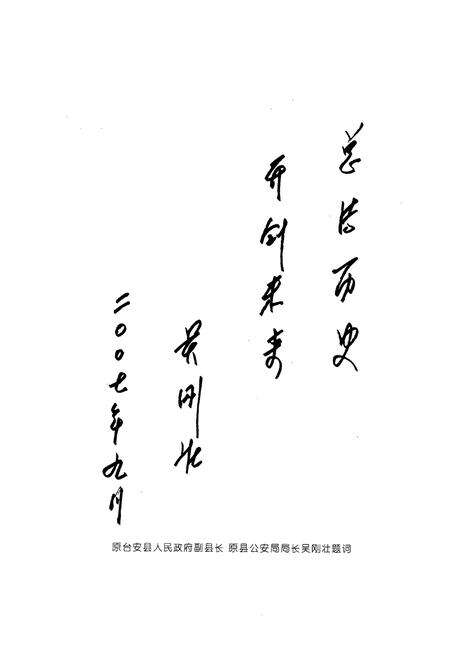 总结历史
开创未来
吴刚壮
二〇〇七年九月
原台安县人民政府副县长 原县公安局局长吴刚壮题词